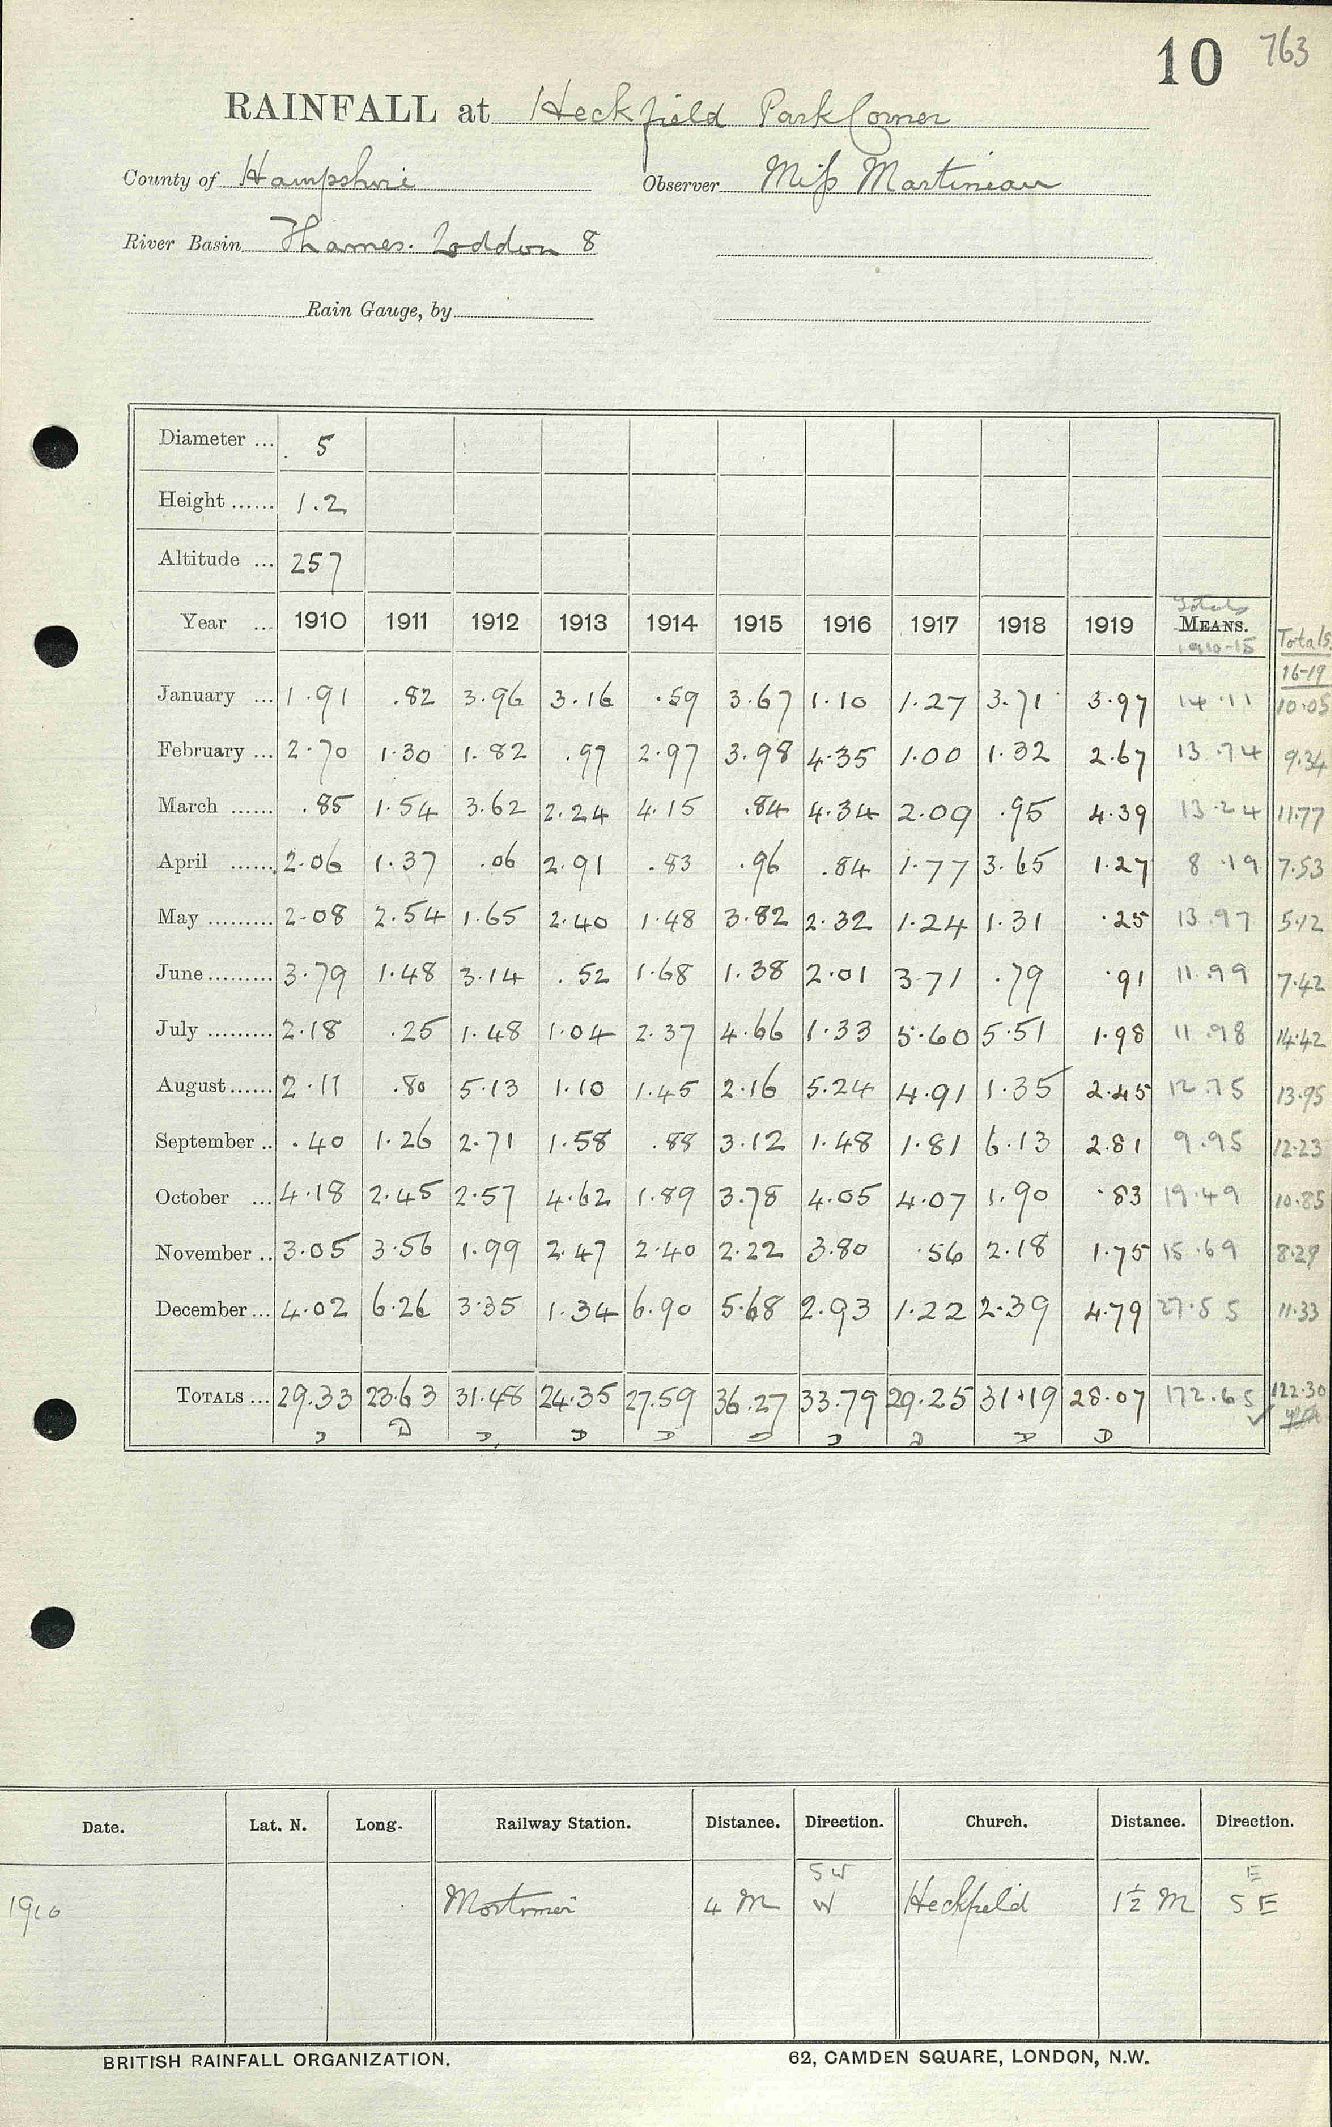 10 763
RAINFALL at Heckfield Park Corner
County of Hampshire Observer Miss Martineau
River Basin Thames. Loddon 8
Rain Gauge, by
Diameter ... 5
Height ...... 1.2
Altitude ... 257
Totals
Year ... 1910 1911 1912 1913 1914 1915 1916 1917 1918 1919 MEANS. Totals
1910-15 16-19
January ... 1.91 .82 3.96 3.16 .59 3.67 1.10 1.27 3.71 3.97 14.11 10.05
February ... 2.70 1.30 1.82 .97 2.97 3.98 4.35 1.00 1.32 2.67 13.74 9.34
March ...... .85 1.54 3.62 2.24 4.15 .84 4.34 2.09 .95 4.39 13.24 11.77
April ...... 2.06 1.37 .06 2.91 .83 .96 .84 1.77 3.65 1.27 8.19 7.53
May ......... 2.08 2.54 1.65 2.40 1.48 3.82 2.32 1.24 1.31 .25 13.97 5.12
June ......... 3.79 1.48 3.14 .52 1.68 1.38 2.01 3.71 .79 .91 11.99 7.42
July ......... 2.18 .25 1.48 1.04 2.37 4.66 1.33 5.60 5.51 1.98 11.98 14.42
August ...... 2.11 .80 5.13 1.10 1.45 2.16 5.24 4.91 1.35 2.45 12.75 13.95
September .. .40 1.26 2.71 1.58 .88 3.12 1.48 1.81 6.13 2.81 9.95 12.23
October ... 4.18 2.45 2.57 4.62 1.89 3.78 4.05 4.07 1.90 .83 19.49 10.85
November .. 3.05 3.56 1.99 2.47 2.40 2.22 3.80 .56 2.18 1.75 15.69 8.29
December ... 4.02 6.26 3.35 1.34 6.90 5.68 2.93 1.22 2.39 4.79 27.55 11.33
TOTALS ... 29.33 23.63 31.48 24.35 27.59 36.27 33.79 29.25 31.19 28.07 172.65 122.30
D D D D D D D D D D
Date. Lat. N. Long. Railway Station. Distance. Direction. Church. Distance. Direction.
SW E
1910 Mortimer 4 M W Heckfield 1½ M SE
BRITISH RAINFALL ORGANIZATION. 62, CAMDEN SQUARE, LONDON, N.W.